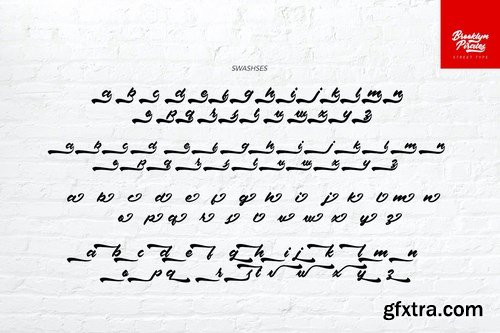 Brooklyn
Pirates
STREET TYPE
SWASHSES
a b c d e f g h i j k l m n
o p q r s t u v w x y z
a b c d e f g h i j k l m n
o p q r s t u v w x y z
a b c d e f g h i j k l m n
o p q r s t u v w x y z
a b c d e f g h i j k l m n
o p q r s t u v w x y z
gfxtra.com